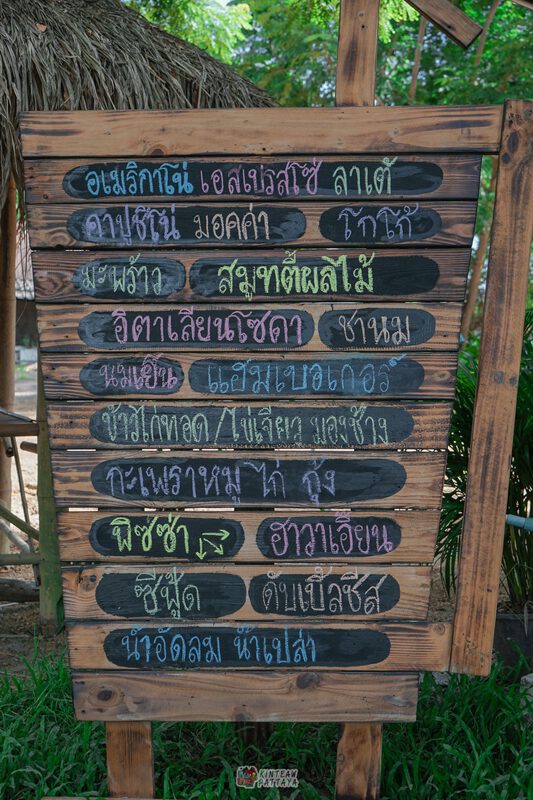 อเมริกาโน่ เอสเปรสโซ่ ลาเต้
คาปูชิโน่ มอคค่า โกโก้
มะพร้าว สมูทตี้ผลไม้
อิตาเลียนโซดา ชานม
นมเย็น แฮมเบอเกอร์
ข้าวไก่ทอด/ไข่เจียว มองช้าง
กะเพราหมู ไก่ กุ้ง
พิซซ่า ฮาวาเอี้ยน
ซีฟู้ด ดับเบิ้ลชีส
น้ำอัดลม น้ำเปล่า
KINTEAW
PATTAYA